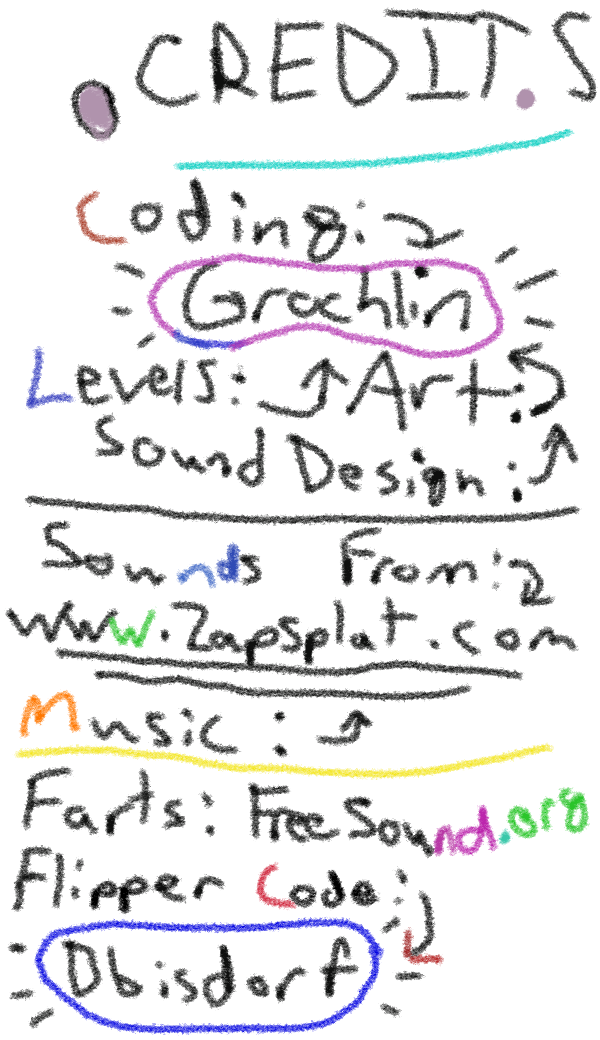 CREDIT.S
Coding:
Grachlin
Levels: Art:
Sound Design:
Sounds From:
www.zapsplat.com
Music:
Farts: FreeSound.org
Flipper Code:
Dbisdorf